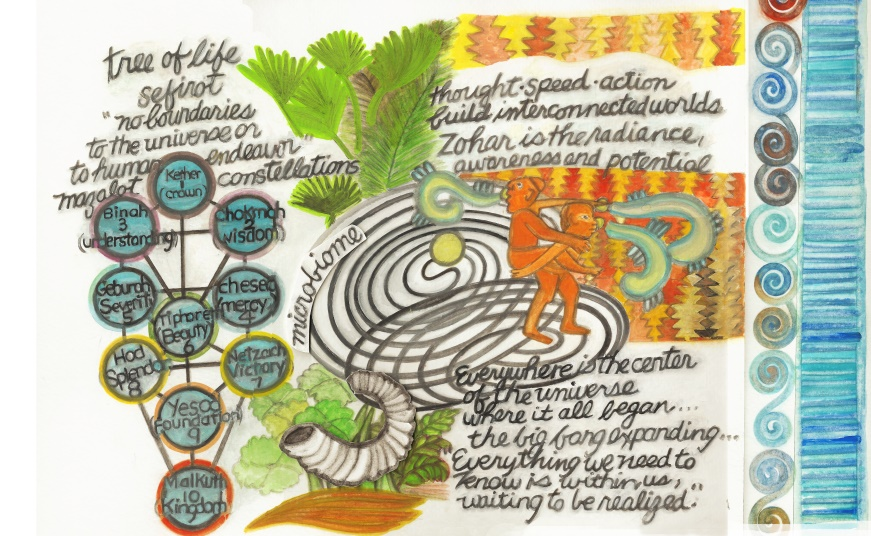 tree of life
sefirot
"no boundaries
to the universe or
to human endeavor"
mazalot constellations
Kether
1
(crown)
Binah
3
(understanding)
Chokmah
2
wisdom
Geburah
Severiti
5
Chesed
(mercy)
4
Tiphare
(Beauty)
6
Hod
Splendo
8
Netzach
Victory
7
Yesod
(Foundation)
9
Malkuth
10
Kingdom
microbiome
thought·speed·action
build interconnected worlds
Zohar is the radiance,
awareness and potential
Everywhere is the center
of the universe
where it all began...
the big bang expanding...
"Everything we need to
know is within us,
waiting to be realized."